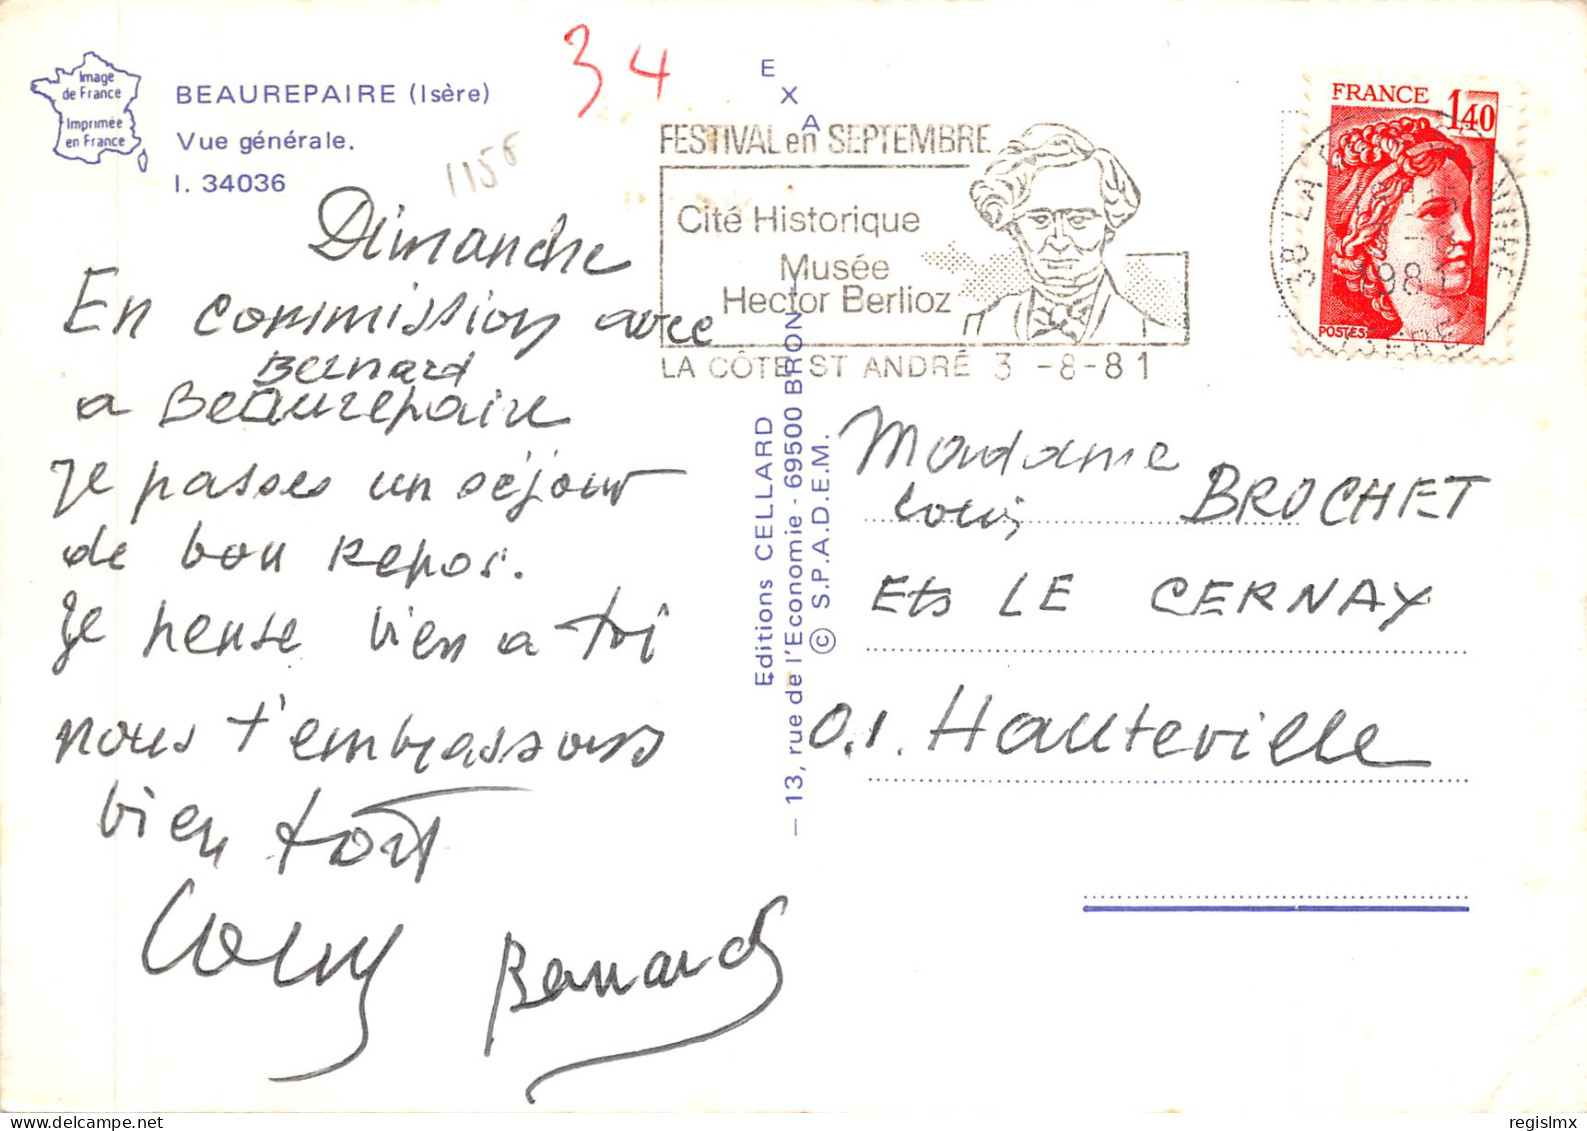 Image
de France
Imprimée
en France
BEAUREPAIRE (Isère)
Vue générale.
I. 34036
34
1158
Dimanche
En commission avec
Bernard
a Beaurepaire
Je passes un séjour
de bon repos.
Je pense bien a toi
nous t'embrassons
bien tôt
Louis Bernard
EXA
Editions CELLARD
— 13, rue de l'Economie - 69500 BRON
© S.P.A.D.E.M.
FESTIVAL en SEPTEMBRE
Cité Historique
Musée
Hector Berlioz
LA CÔTE ST ANDRÉ 3 -8-81
FRANCE 1,40
POSTES
38 LA
1981
ISERE
Madame
Louis BROCHET
Ets LE CERNAY
01. Hauteville
regislmx